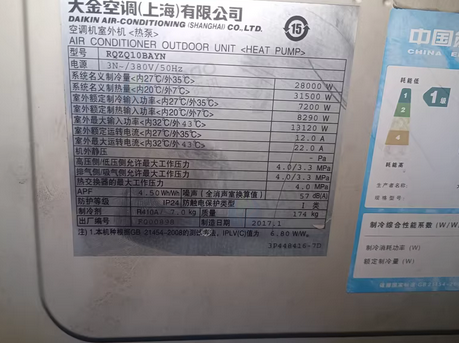 大金空调(上海)有限公司
DAIKIN AIR-CONDITIONING (SHANGHAI) CO.,LTD.
15
空调机室外机 <热泵>
AIR CONDITIONER OUTDOOR UNIT <HEAT PUMP>
型号 RQZQ10BAYN
电源 3N~/380V/50Hz
系统名义制冷量<内27℃/外35℃> 28000 W
系统名义制热量<内20℃/外7℃> 31500 W
室外额定制冷输入功率<内27℃/外35℃> 7200 W
室外额定制热输入功率<内20℃/外7℃> 8290 W
室外最大输入功率<内32℃/外43℃> 13120 W
室外额定运转电流<内27℃/外35℃> 12.0 A
室外最大运转电流<内32℃/外43℃> 22.0 A
机外静压 - Pa
高压侧/低压侧允许最大工作压力 4.0/3.3 MPa
排气侧/吸气侧允许最大工作压力 4.0/3.3 MPa
热交换器的最大工作压力 4.0 MPa
APF 4.50 Wh/Wh 噪声(全消声室换算值) 57 dB(A)
防护等级 IP24 防触电保护类型 I 类
制冷剂 R410A 质量 174 kg
出厂编号 制造日期 2017.1
注1.本机种根据GB 21454-2008的测试方法, IPLV(C)值为 6.80 W/W.
3P448426-7D
中国
CHINA
耗能低
1
2
3
1级
耗能高
生产者名称
规格型号
制冷综合性能系数 (W/W)
制冷消耗功率(W)
额定制冷量(W)